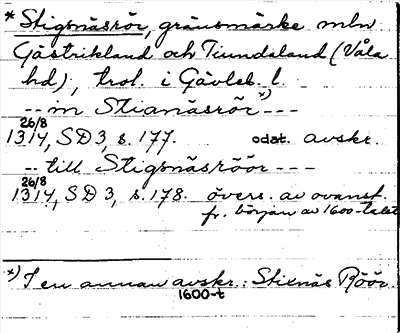 * Stigsnäsrör, gränsmärke mln
Gästrikland och Tiundaland (Våla
hd), trol. i Gävleb. l.
-- in Stianäsrör *) ---
26/8
1314, SD 3, s. 177. odat. avskr.
-- till Stigsnäsröör ---
26/8
1314, SD 3, s. 178. övers. av ovanst.
fr. början av 1600-talet
*) I en annan avskr.: Stixnäs Röör.
1600-t